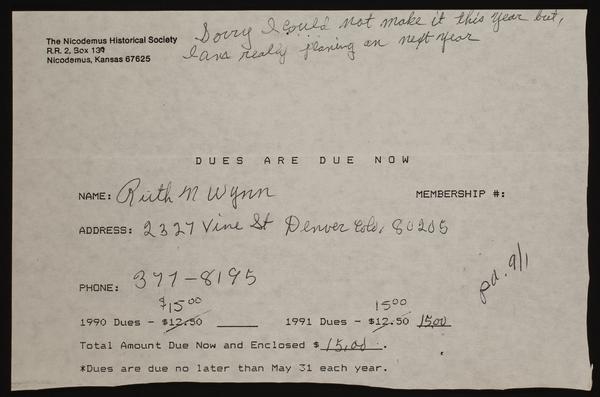 Sorry I could not make it this year but,
I am really planing on next year
The Nicodemus Historical Society
R.R. 2, Box 139
Nicodemus, Kansas 67625
DUES ARE DUE NOW
NAME: Ruth M Wynn MEMBERSHIP #:
ADDRESS: 2327 Vine St Denver Colo, 80205
PHONE: 377-8195
pd. 9/1
$15.00 15.00
1990 Dues - $12.50 ______ 1991 Dues - $12.50 15.00
Total Amount Due Now and Enclosed $ 15.00 .
*Dues are due no later than May 31 each year.